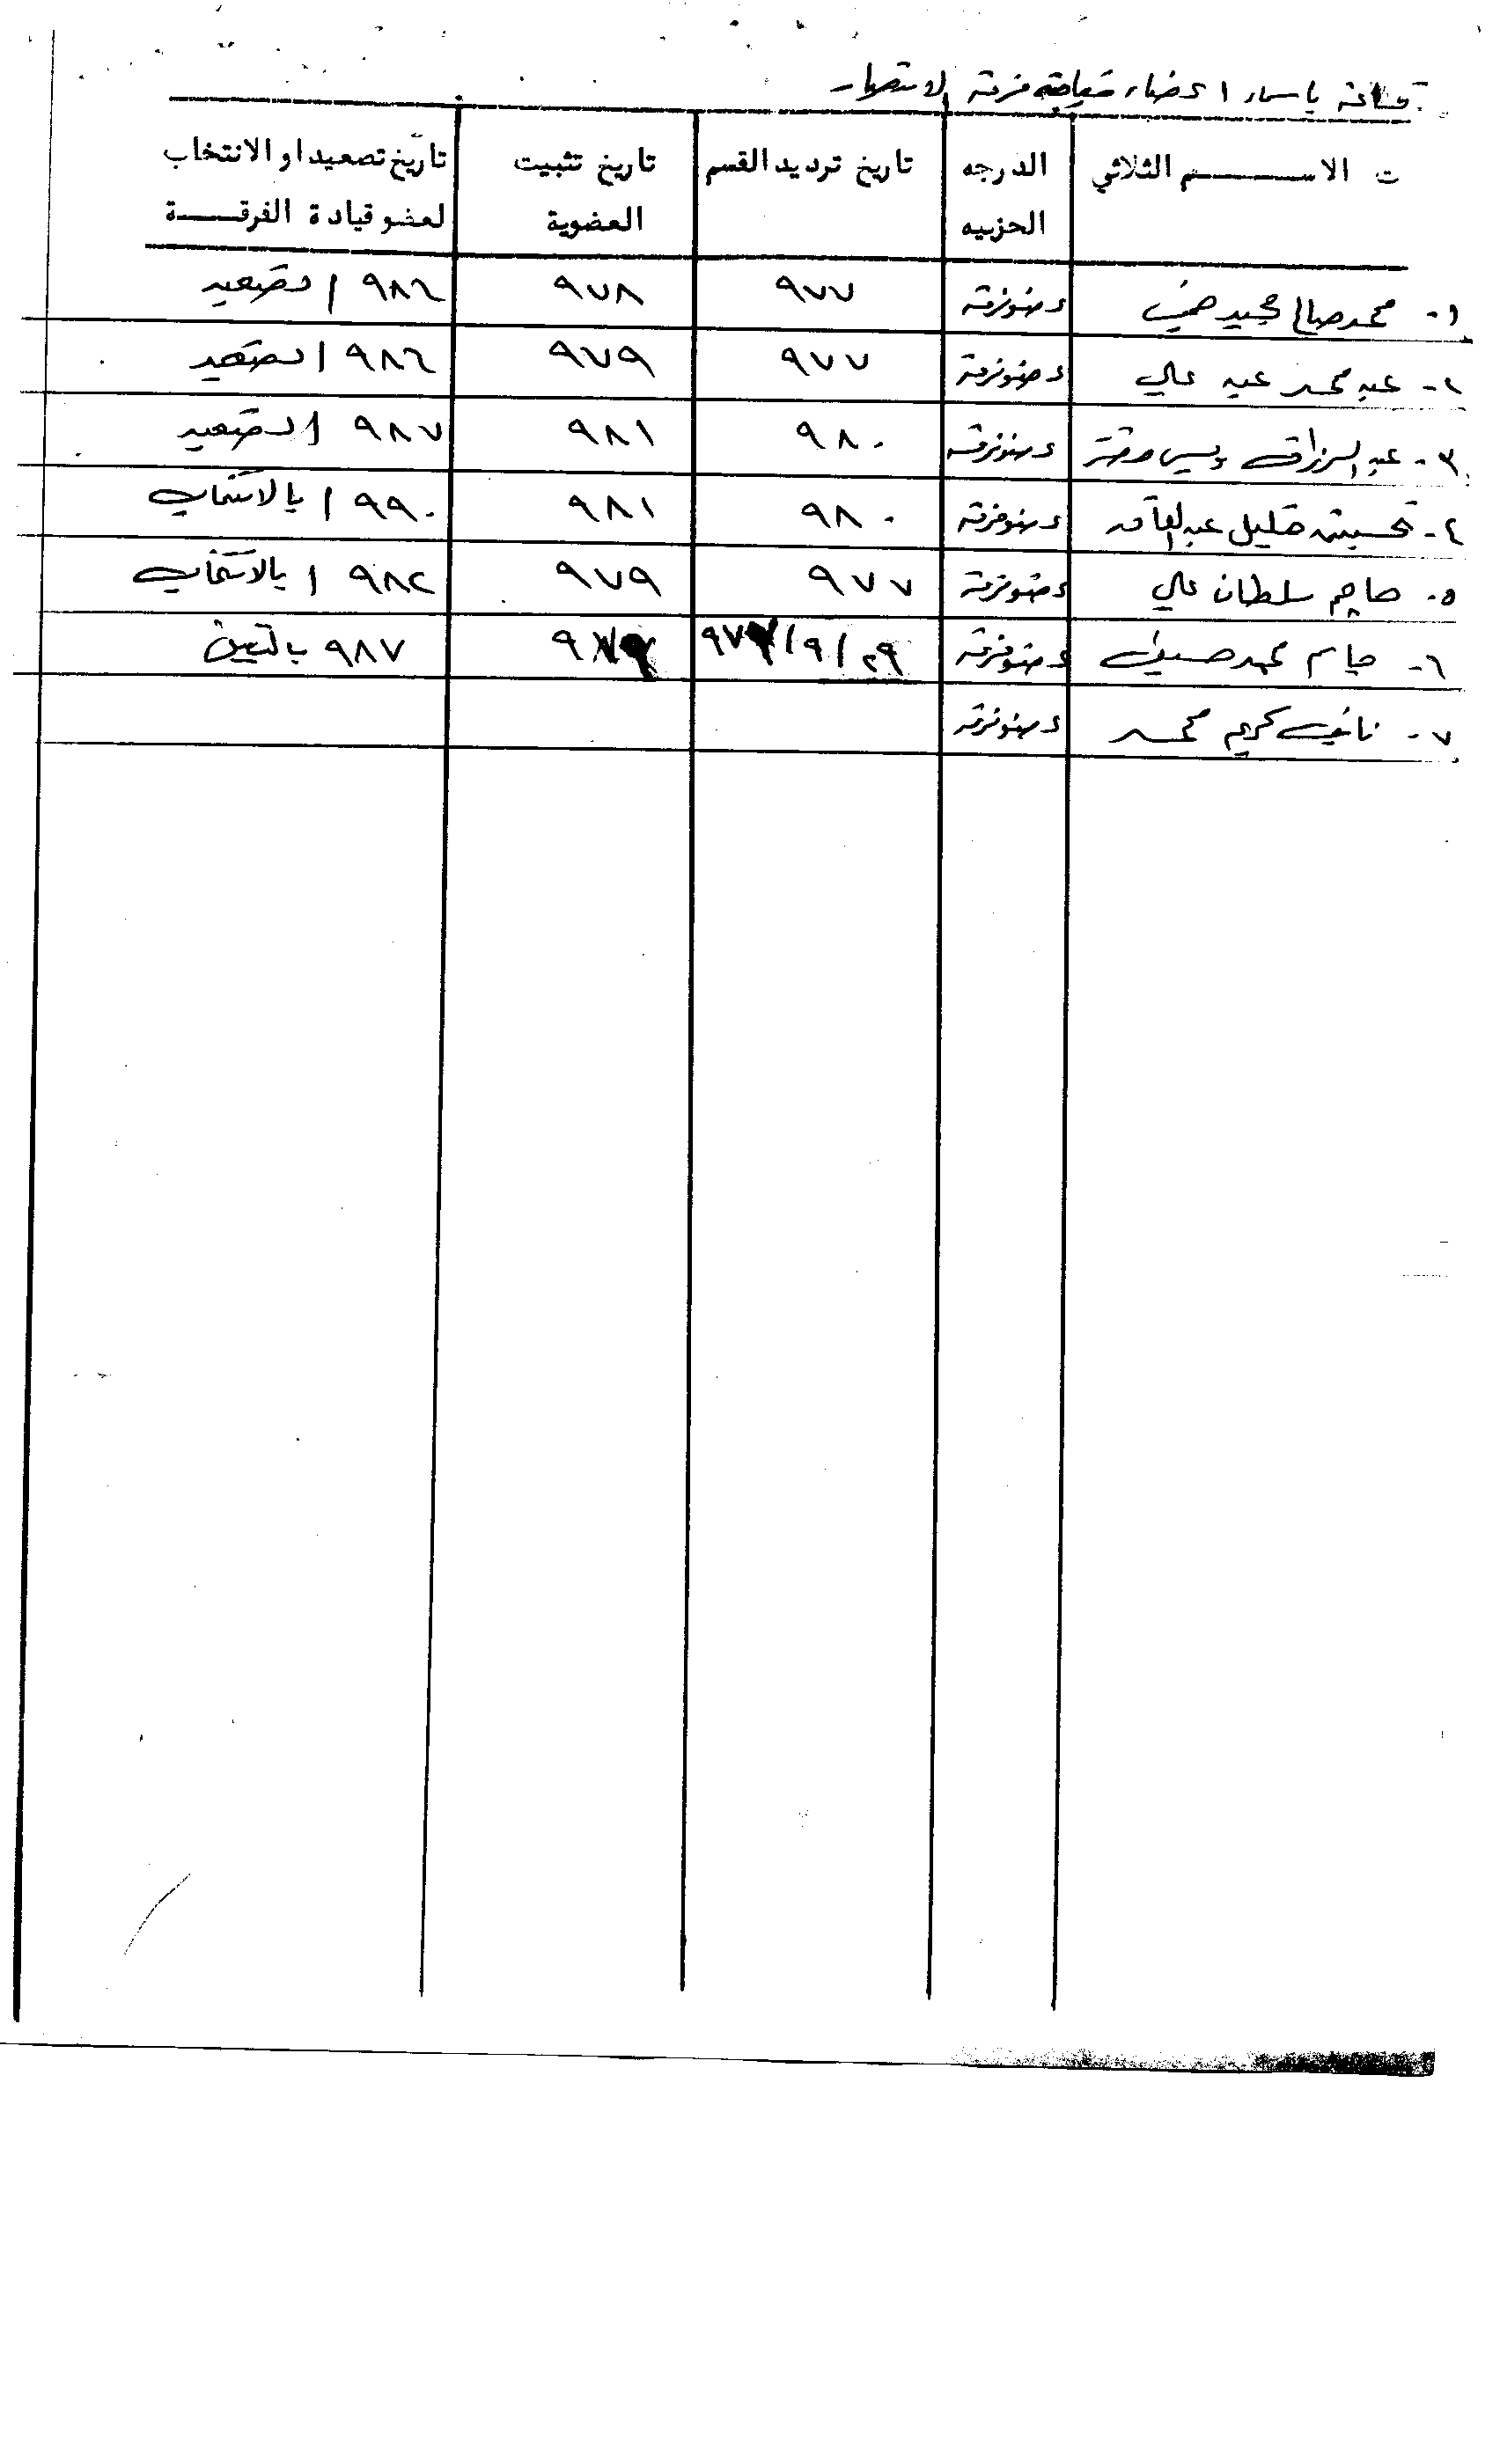 قائمة باسماء اعضاء قيادة فرقة الانتصار
ت الاســـــم الثلاثي الدرجه الحزبيه تاريخ ترديد القسم تاريخ تثبيت العضوية تاريخ تصعيد او الانتخاب لعضو قيادة الفرقـــة
١- محمد صالح مجيد عضو فرقة ٩٧٧ ٩٧٨ ٩٨٦ / تصعيد
٢- عبد محمد عبد علي عضو فرقة ٩٧٧ ٩٧٩ ٩٨٦ / تصعيد
٣- عبد الرزاق ويس عضو فرقة ٩٨٠ ٩٨١ ٩٨٧ / تصعيد
٤- تحسين خليل عبد القادر عضو فرقة ٩٨٠ ٩٨١ ٩٩٠ / بالانتخاب
٥- سلطان علي عضو فرقة ٩٧٧ ٩٧٩ ٩٨٢ / بالانتخاب
٦- محمد عضو فرقة ٢٩ / ٩ / ٩٨٧ بالتعيين
٧- نايف كريم محمد عضو فرقة